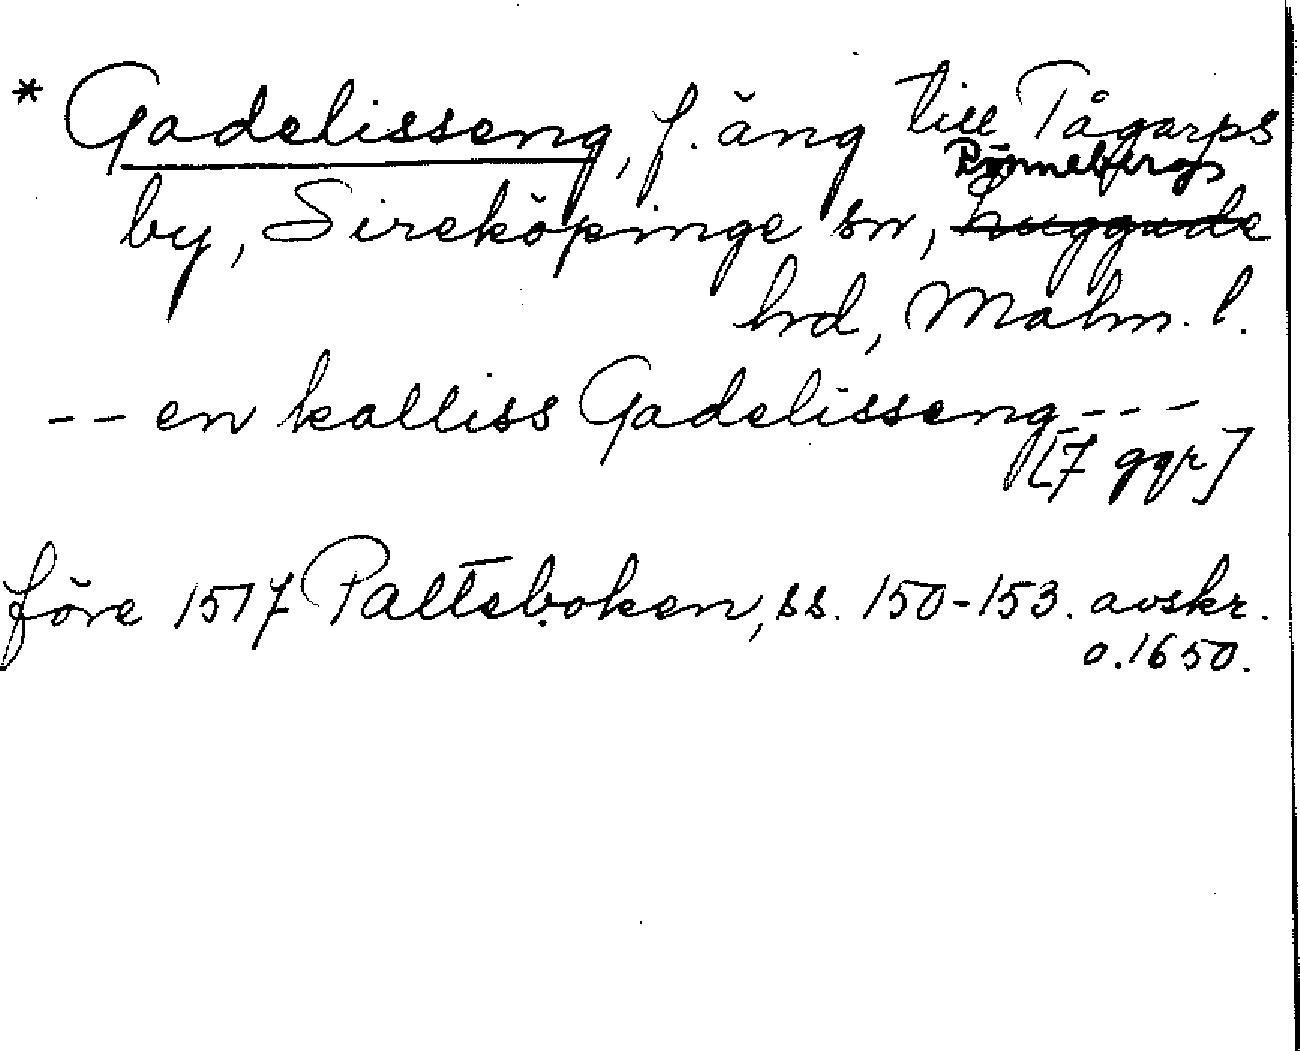 * Gadelisseng, f. äng till Tågarps
Rönnebergs
by, Sireköpinge sn, luggude
hrd, Malm. l.
-- en kalliss Gadelisseng ---
[7 ggr]
före 1517 Palteboken, ss. 150-153. avskr.
o. 1650.